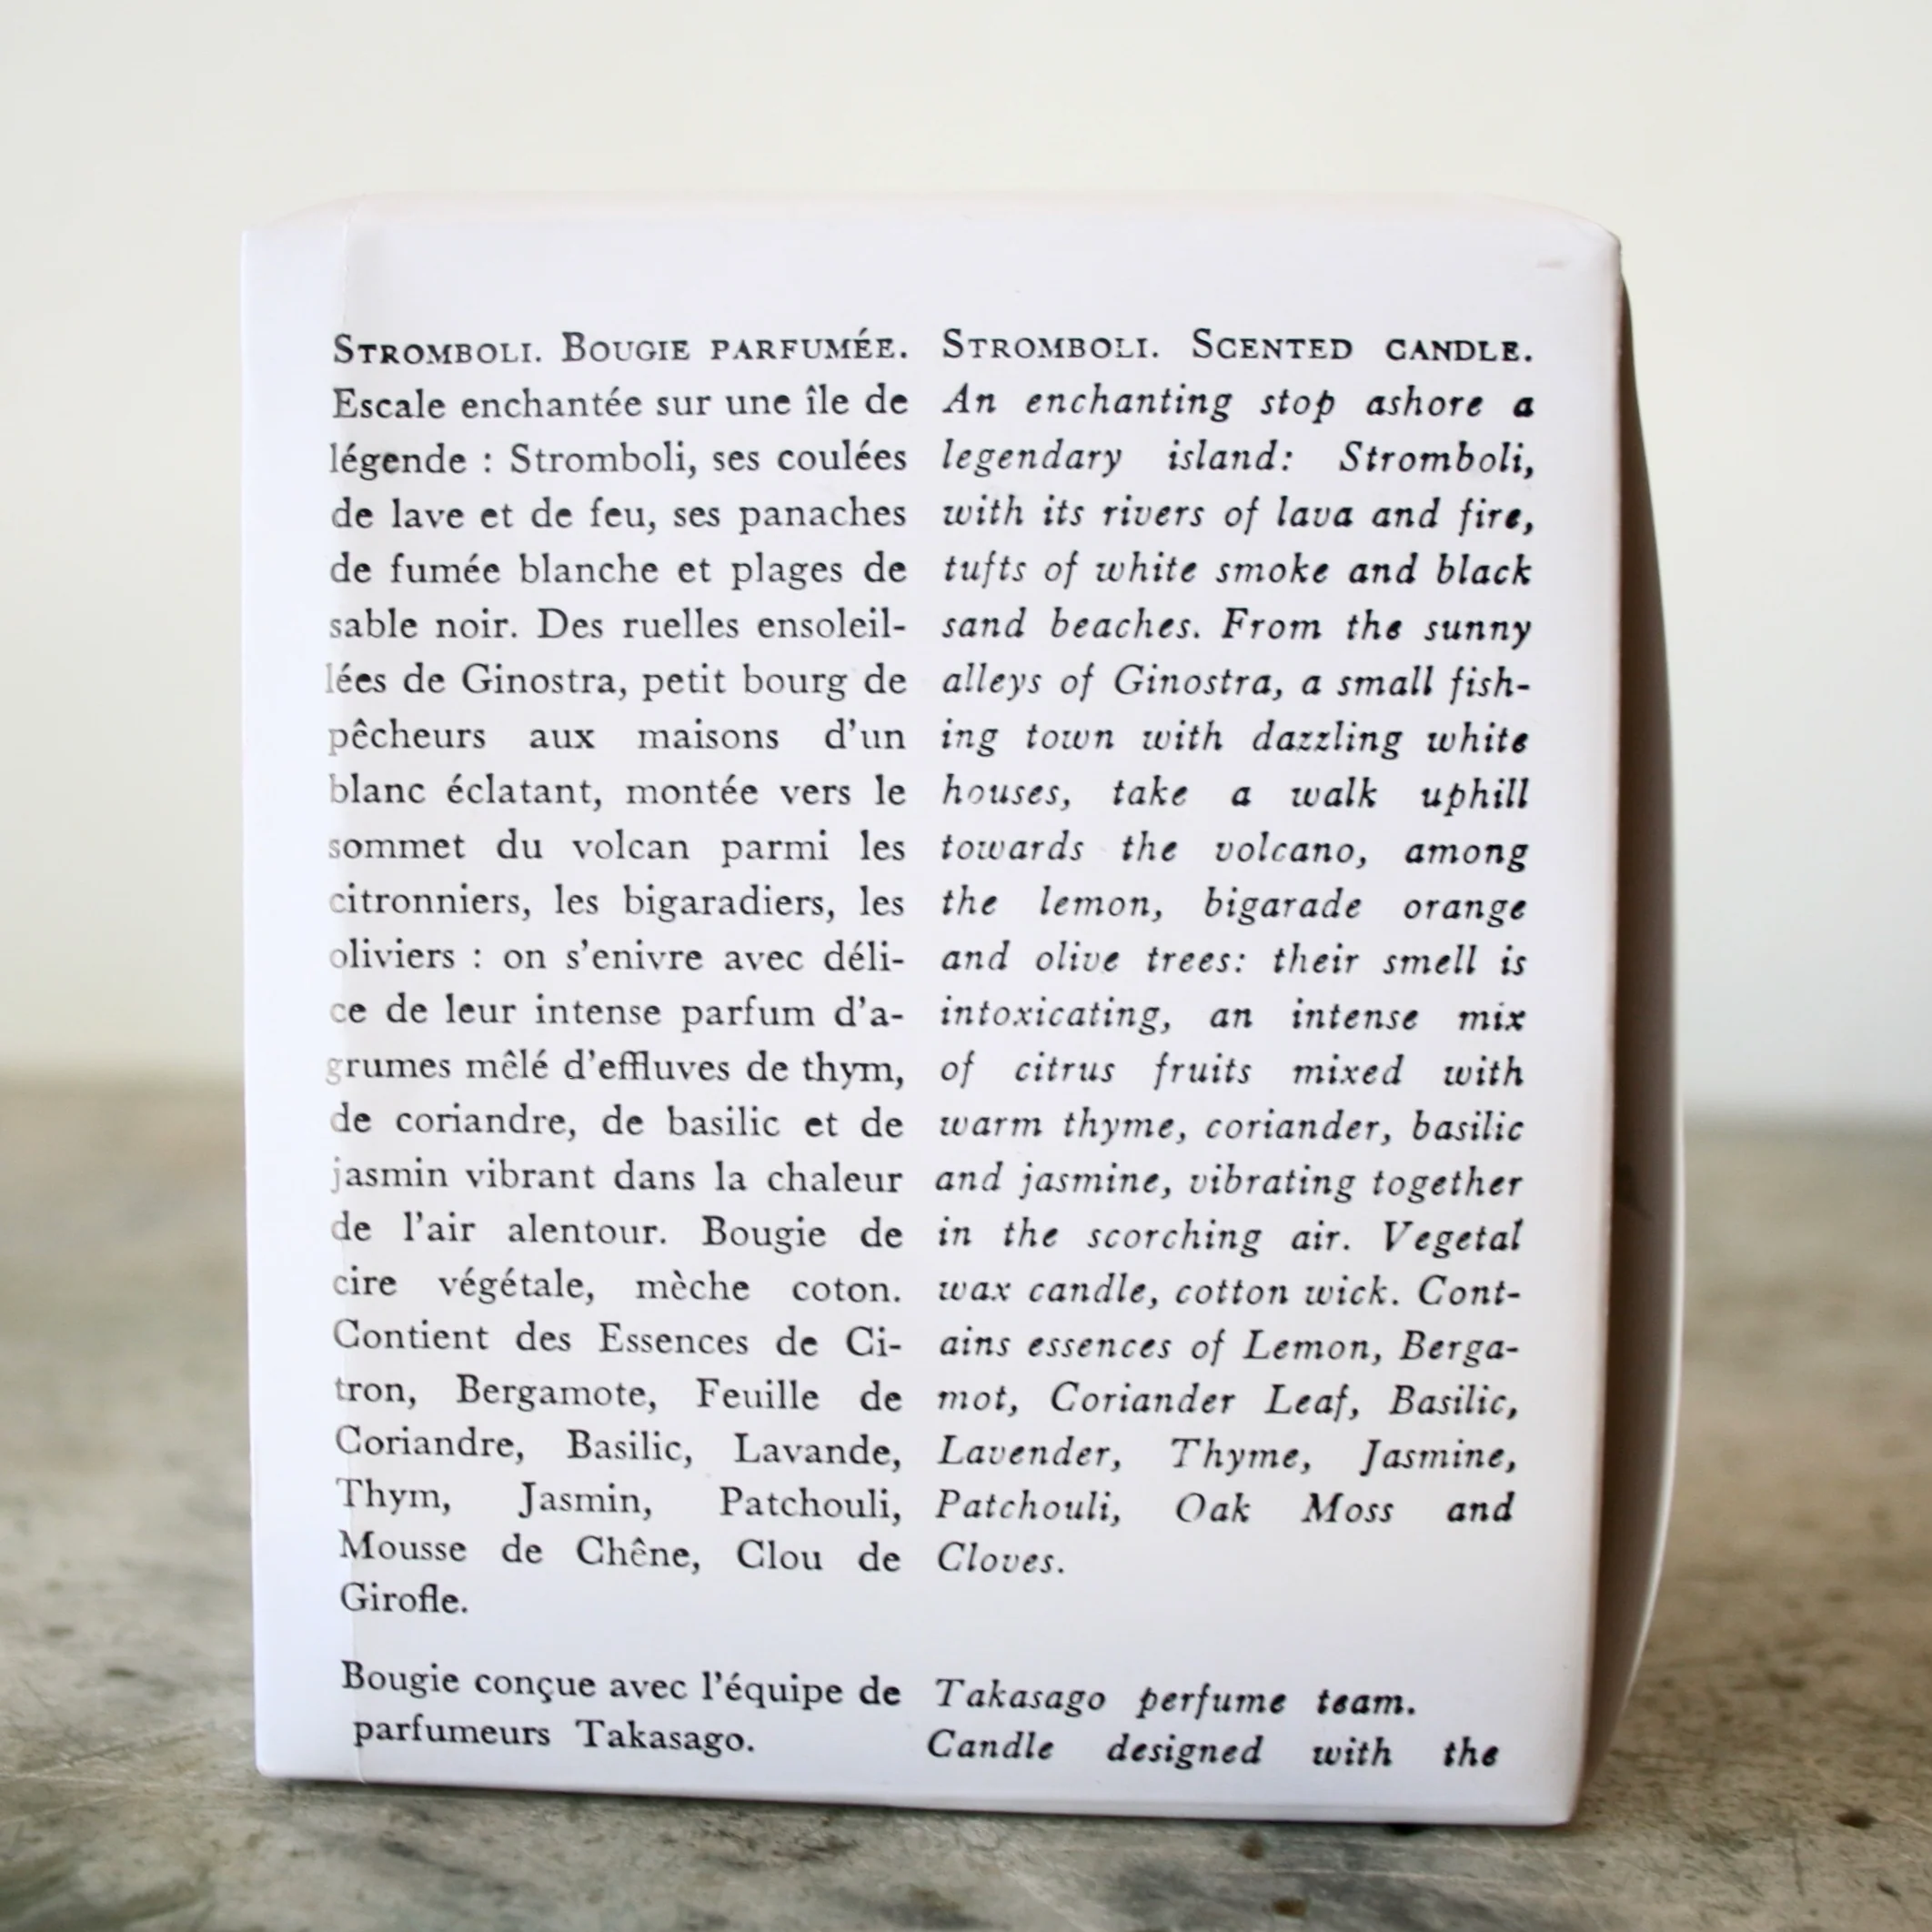 STROMBOLI. BOUGIE PARFUMÉE.
Escale enchantée sur une île de
légende : Stromboli, ses coulées
de lave et de feu, ses panaches
de fumée blanche et plages de
sable noir. Des ruelles ensoleil-
lées de Ginostra, petit bourg de
pêcheurs aux maisons d'un
blanc éclatant, montée vers le
sommet du volcan parmi les
citronniers, les bigaradiers, les
oliviers : on s'enivre avec déli-
ce de leur intense parfum d'a-
grumes mêlé d'effluves de thym,
de coriandre, de basilic et de
jasmin vibrant dans la chaleur
de l'air alentour. Bougie de
cire végétale, mèche coton.
Contient des Essences de Ci-
tron, Bergamote, Feuille de
Coriandre, Basilic, Lavande,
Thym, Jasmin, Patchouli,
Mousse de Chêne, Clou de
Girofle.
Bougie conçue avec l'équipe de
parfumeurs Takasago.
STROMBOLI. SCENTED CANDLE.
An enchanting stop ashore a
legendary island: Stromboli,
with its rivers of lava and fire,
tufts of white smoke and black
sand beaches. From the sunny
alleys of Ginostra, a small fish-
ing town with dazzling white
houses, take a walk uphill
towards the volcano, among
the lemon, bigarade orange
and olive trees: their smell is
intoxicating, an intense mix
of citrus fruits mixed with
warm thyme, coriander, basilic
and jasmine, vibrating together
in the scorching air. Vegetal
wax candle, cotton wick. Cont-
ains essences of Lemon, Berga-
mot, Coriander Leaf, Basilic,
Lavender, Thyme, Jasmine,
Patchouli, Oak Moss and
Cloves.
Takasago perfume team.
Candle designed with the